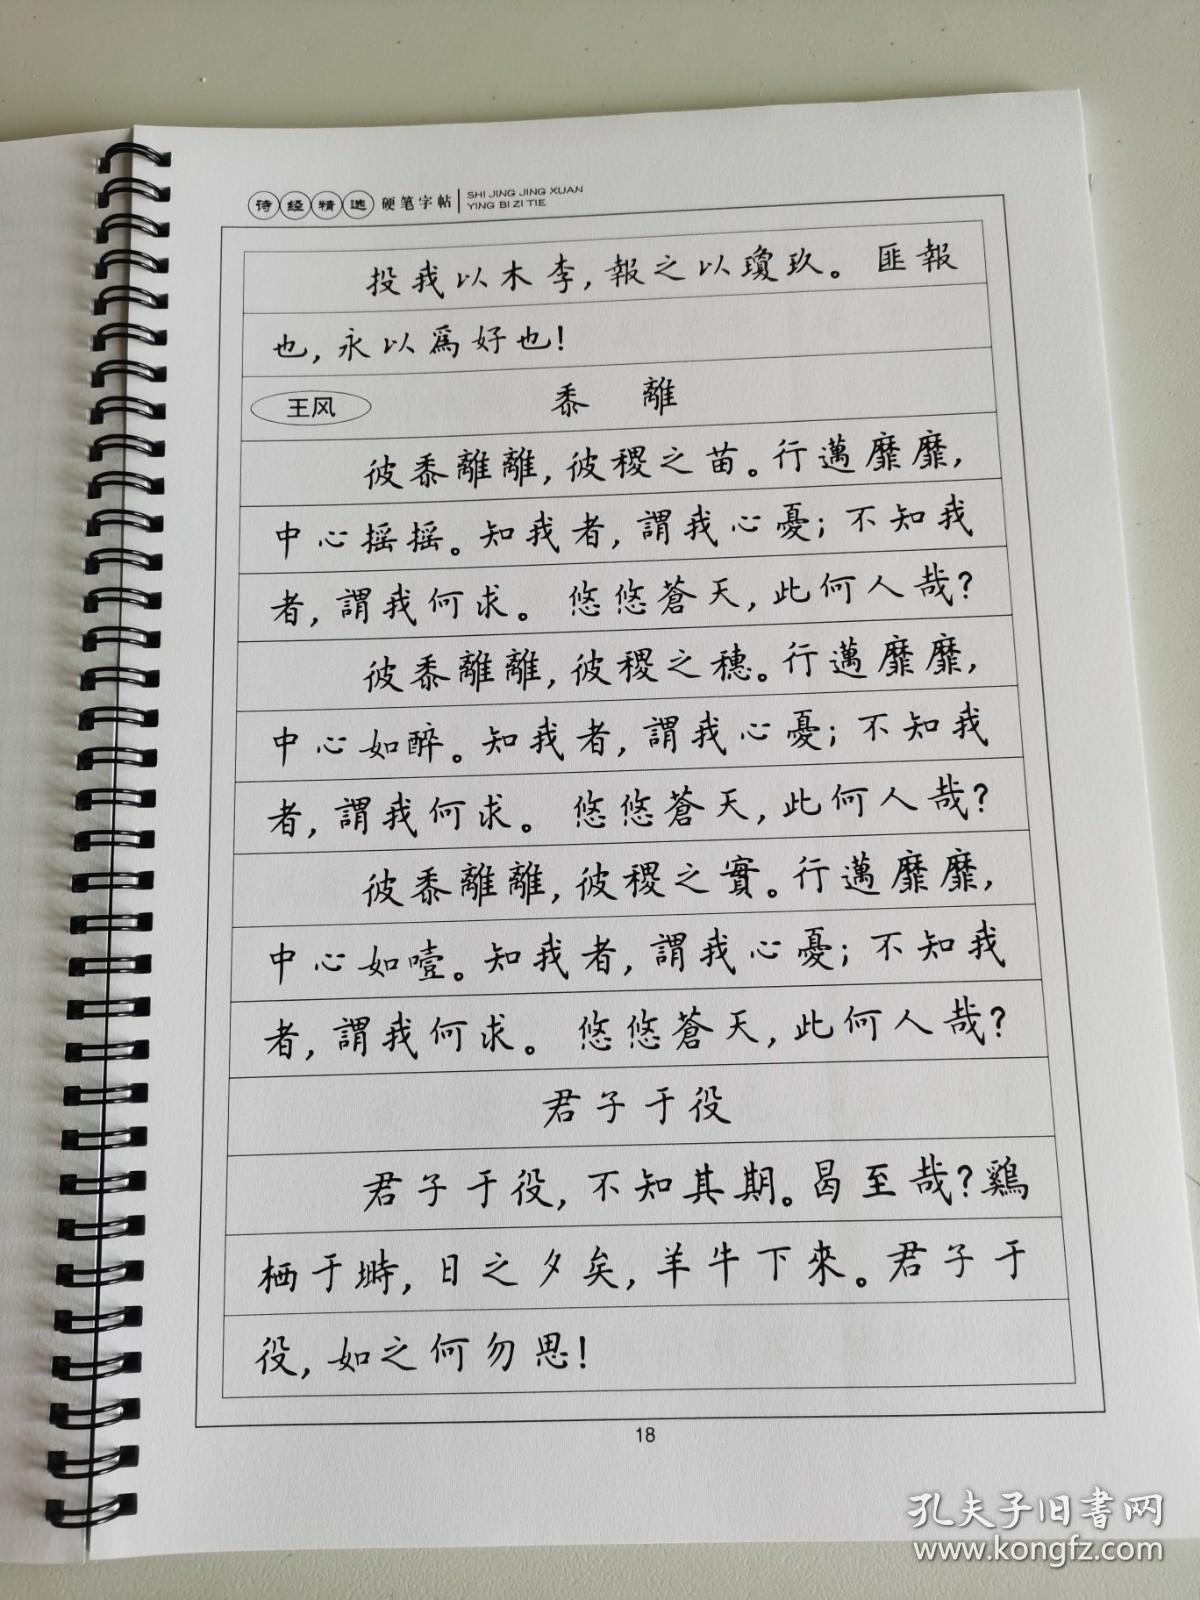 诗经精选 硬笔字帖 SHI JING JING XUAN
YING BI ZI TIE
投我以木李,報之以瓊玖。匪報
也,永以爲好也!
王风 黍離
彼黍離離,彼稷之苗。行邁靡靡,
中心摇摇。知我者,謂我心憂;不知我
者,謂我何求。悠悠蒼天,此何人哉?
彼黍離離,彼稷之穗。行邁靡靡,
中心如醉。知我者,謂我心憂;不知我
者,謂我何求。悠悠蒼天,此何人哉?
彼黍離離,彼稷之實。行邁靡靡,
中心如噎。知我者,謂我心憂;不知我
者,謂我何求。悠悠蒼天,此何人哉?
君子于役
君子于役,不知其期。曷至哉?鷄
栖于塒,日之夕矣,羊牛下來。君子于
役,如之何勿思!
18
孔夫子旧書网
www.kongfz.com